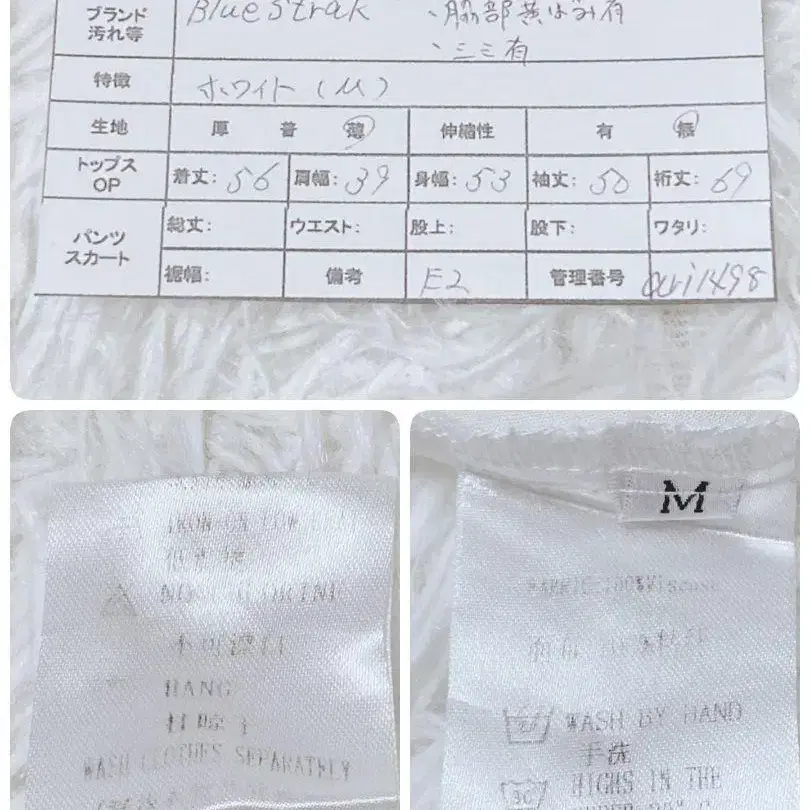 ブランド Blue Strak ・脇部黄ばみ有
汚れ等 ・シミ有
特徴 ホワイト(M)
生地 厚 普 薄 伸縮性 有 無
トップス OP 着丈: 56 肩幅: 39 身幅: 53 袖丈: 50 裄丈: 69
パンツ スカート 総丈: ウエスト: 股上: 股下: ワタリ:
裾幅: 備考 E2 管理番号
IRON ON LOW
NO
HANG
WASH CLOTHES SEPARATELY
M
FABRIC:100%Viscose
WASH BY HAND
手洗
30
HIGHS IN THE